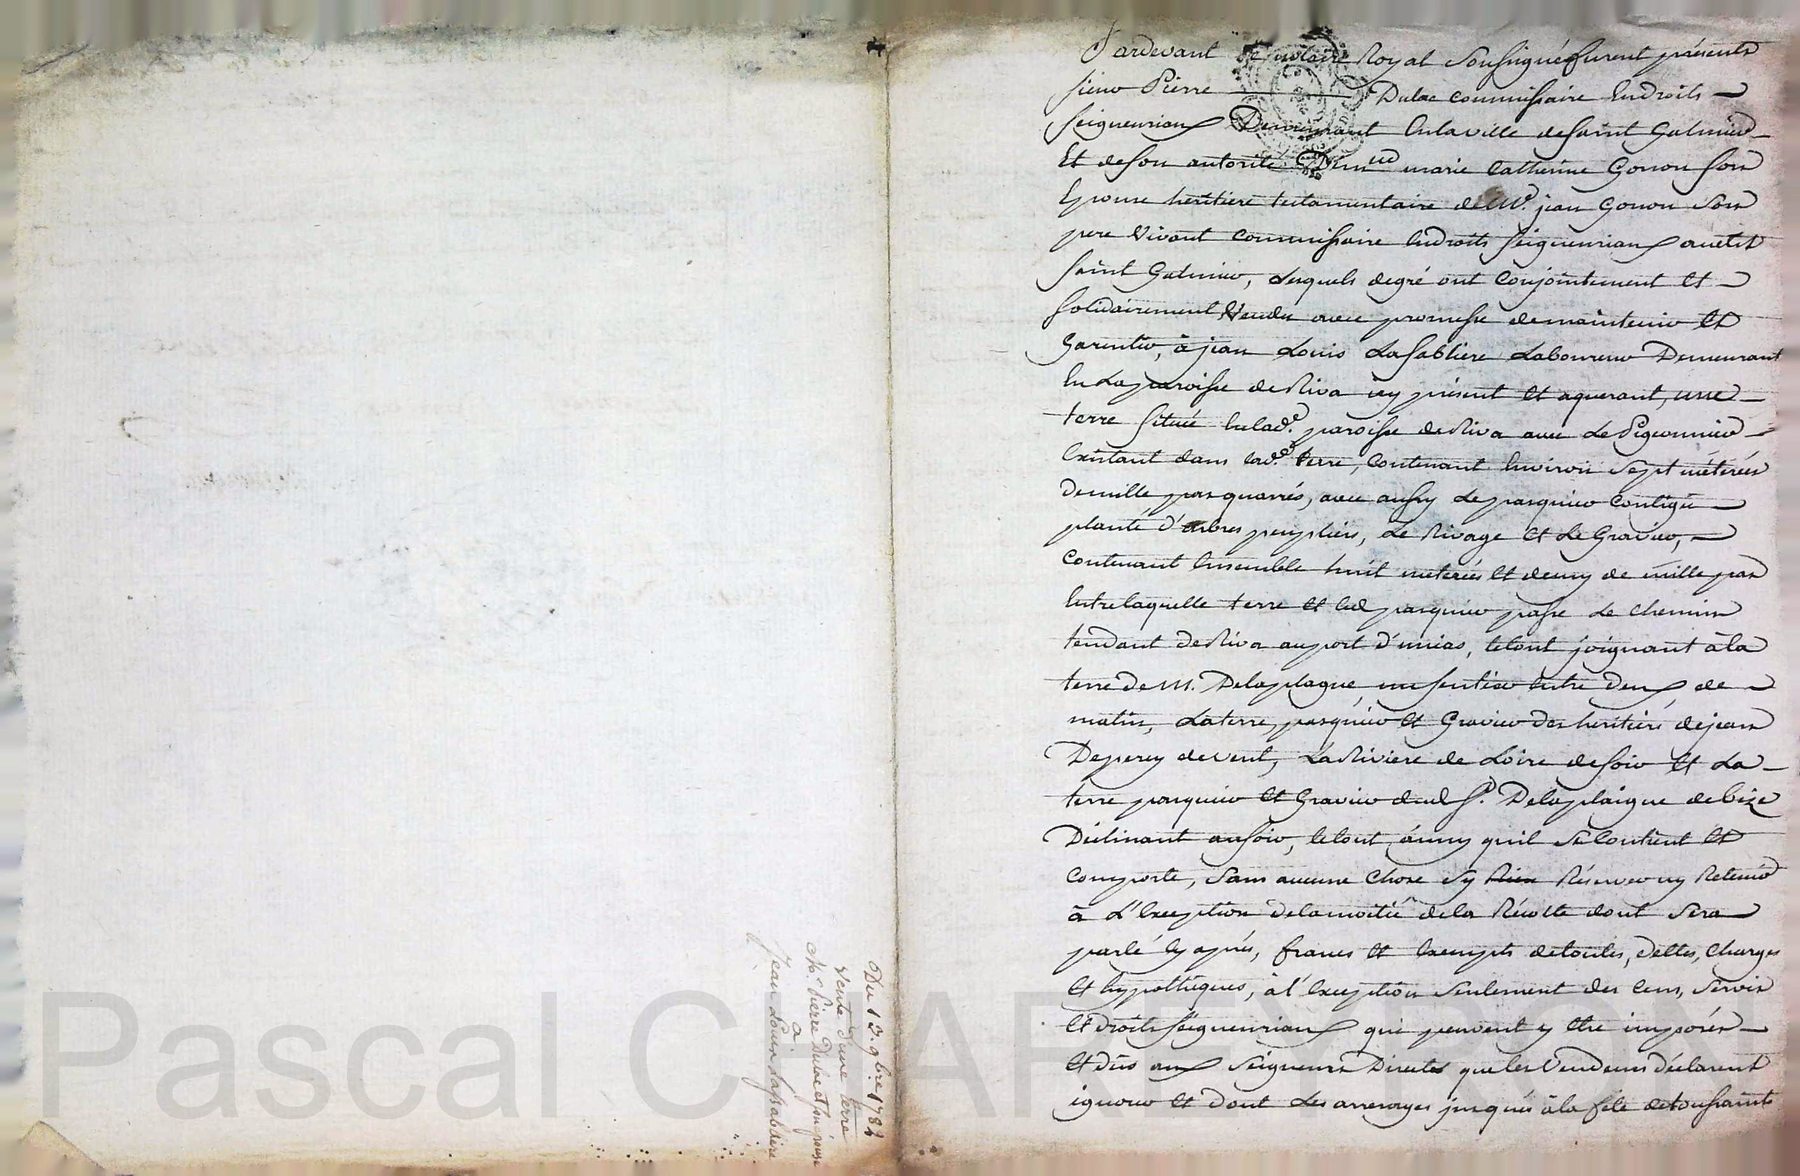 Du 13. 9bre. 1782
Vente d'une terre
Mr. Pierre Dulac et son épouse
a
Jean Louis Lasabliere
Pardevant le notaire Royal Soussigné furent présents
sieur Pierre Dulac commissaire Endroits
seigneuriaux Demeurant Enlaville deSaint Galmier
Et deson autorité Dem.lle marie Catherine Gonon son
Epouse heritiere testamentaire de Me. jean Gonon son
pere Vivant Commissaire Endroits seigneuriaux audit
saint Galmier, Lesquels degré ont Conjointement Et
solidairement Vendu avec promesse demaintenir Et
Garentir, à jean Louis Lasabliere Laboureur Demeurant
En Laparoisse deRiva icy présent Et aquerant, une
terre située Enlad.e paroisse deRiva avec Le Pigeonnier
Existant dans lad.e terre, Contenant Environ sept méterées
demille pas quarrés, avec aussy Le pasquier Contigu
planté d'arbres peupliers, Le Rivage Et Le Gravier,
Contenant Ensemble huit meterées Et demy de mille pas
Entrelaquelle terre Et led pasquier passe Le chemin
tendant deRiva auport d'unias, letout joignant àla
terre de M. Delaplagne un sentier Entre deux de
matin, Laterre, pasquier Et Gravier des heritiers dejean
Deperey devent, LaRiviere de Loire desoir Et La
terre pasquier Et Gravier dud Sr. Delaplaigne debize
Déclinant ausoir, letout ainsy quil se Contient Et
Comporte, sans aucune Chose s'y Rien Réserver ny Retenir
à L'Exception delamoitié dela Récolte dont sera
parlé cy après, francs Et Exempts detoutes, dettes, Charges
Et hypothèques, à l'Exception seulement des Cens, servis
Et droits seigneuriaux qui peuvent y Etre imposés
Et dûs aux seigneurs Directes queles Vendeurs déclarent
ignorer Et dont Les arrerages jusqués àla fête detoussaints
Pascal CHAREYRON